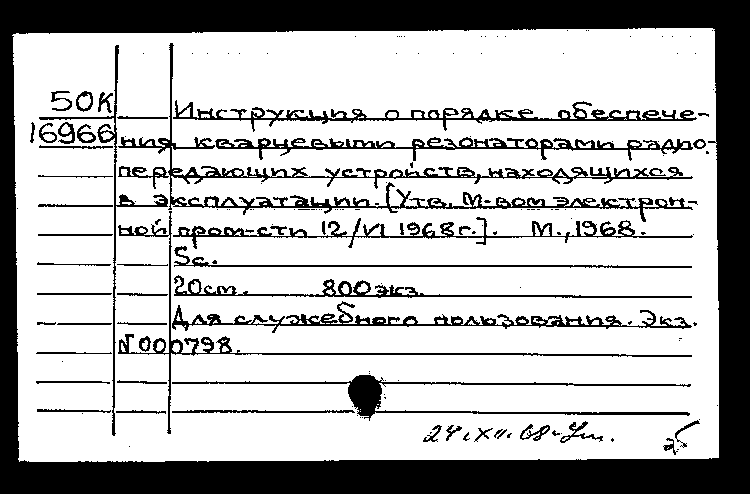 50К
16966
Инструкция о порядке обеспече-
ния кварцевыми резонаторами радио-
передающих устройств, находящихся
в эксплуатации. [Утв. М-вом электрон-
ной пром-сти 12/VI 1968г.]. М., 1968.
5с.
20см. 800экз.
Для служебного пользования. Экз.
№000798.
24.XII.68